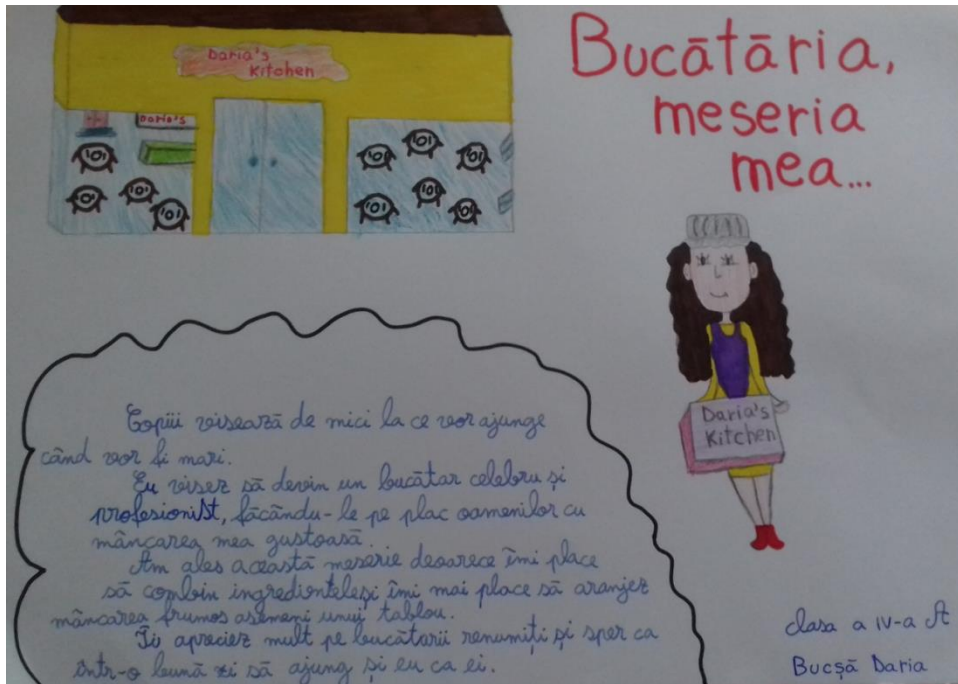 Daria's
Kitchen
Daria's
Bucătăria,
meseria
mea...
Daria's
Kitchen
Copiii visează de mici la ce vor ajunge
când vor fi mari.
Eu visez să devin un bucătar celebru și
profesionist, făcându-le pe plac oamenilor cu
mâncarea mea gustoasă.
Am ales această meserie deoarece îmi place
să combin ingredientele și îmi mai place să aranjez
mâncarea frumos asemeni unui tablou.
Îi apreciez mult pe bucătarii renumiți și sper ca
într-o bună zi să ajung și eu ca ei.
clasa a IV-a A
Bucșă Daria